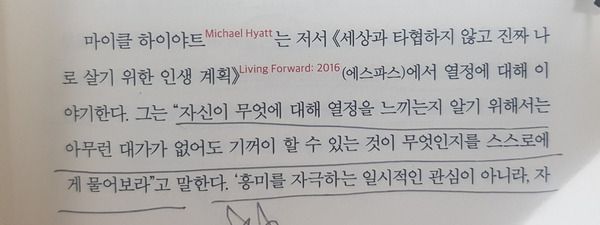 마이클 하이야트Michael Hyatt는 저서 《세상과 타협하지 않고 진짜 나
로 살기 위한 인생 계획》Living Forward: 2016(에스파스)에서 열정에 대해 이
야기한다. 그는 “자신이 무엇에 대해 열정을 느끼는지 알기 위해서는
아무런 대가가 없어도 기꺼이 할 수 있는 것이 무엇인지를 스스로에
게 물어보라”고 말한다. ‘흥미를 자극하는 일시적인 관심이 아니라, 자